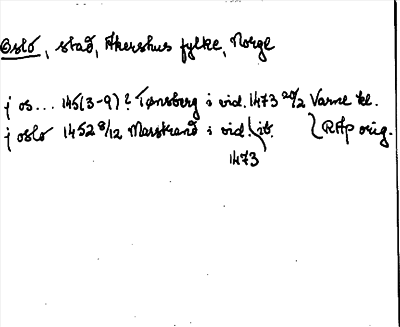 Oslo, stad, Akershus fylke, Norge
j os... 145(3-9)? Tønsberg i vid. 1473 20/2 Varne kl.
j oslo 1452 8/12 Marstrand i vid. lat. } RAp orig.
1473